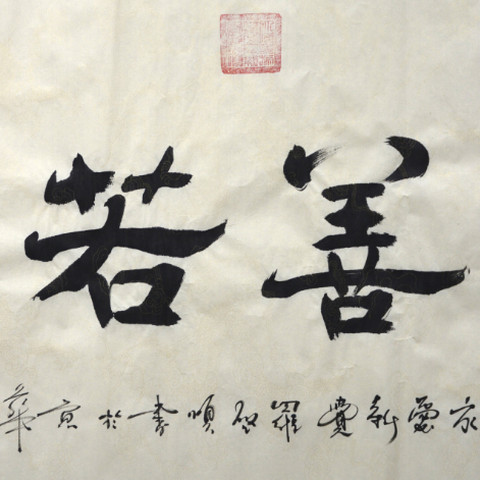 善若
愛新覺羅書於京華